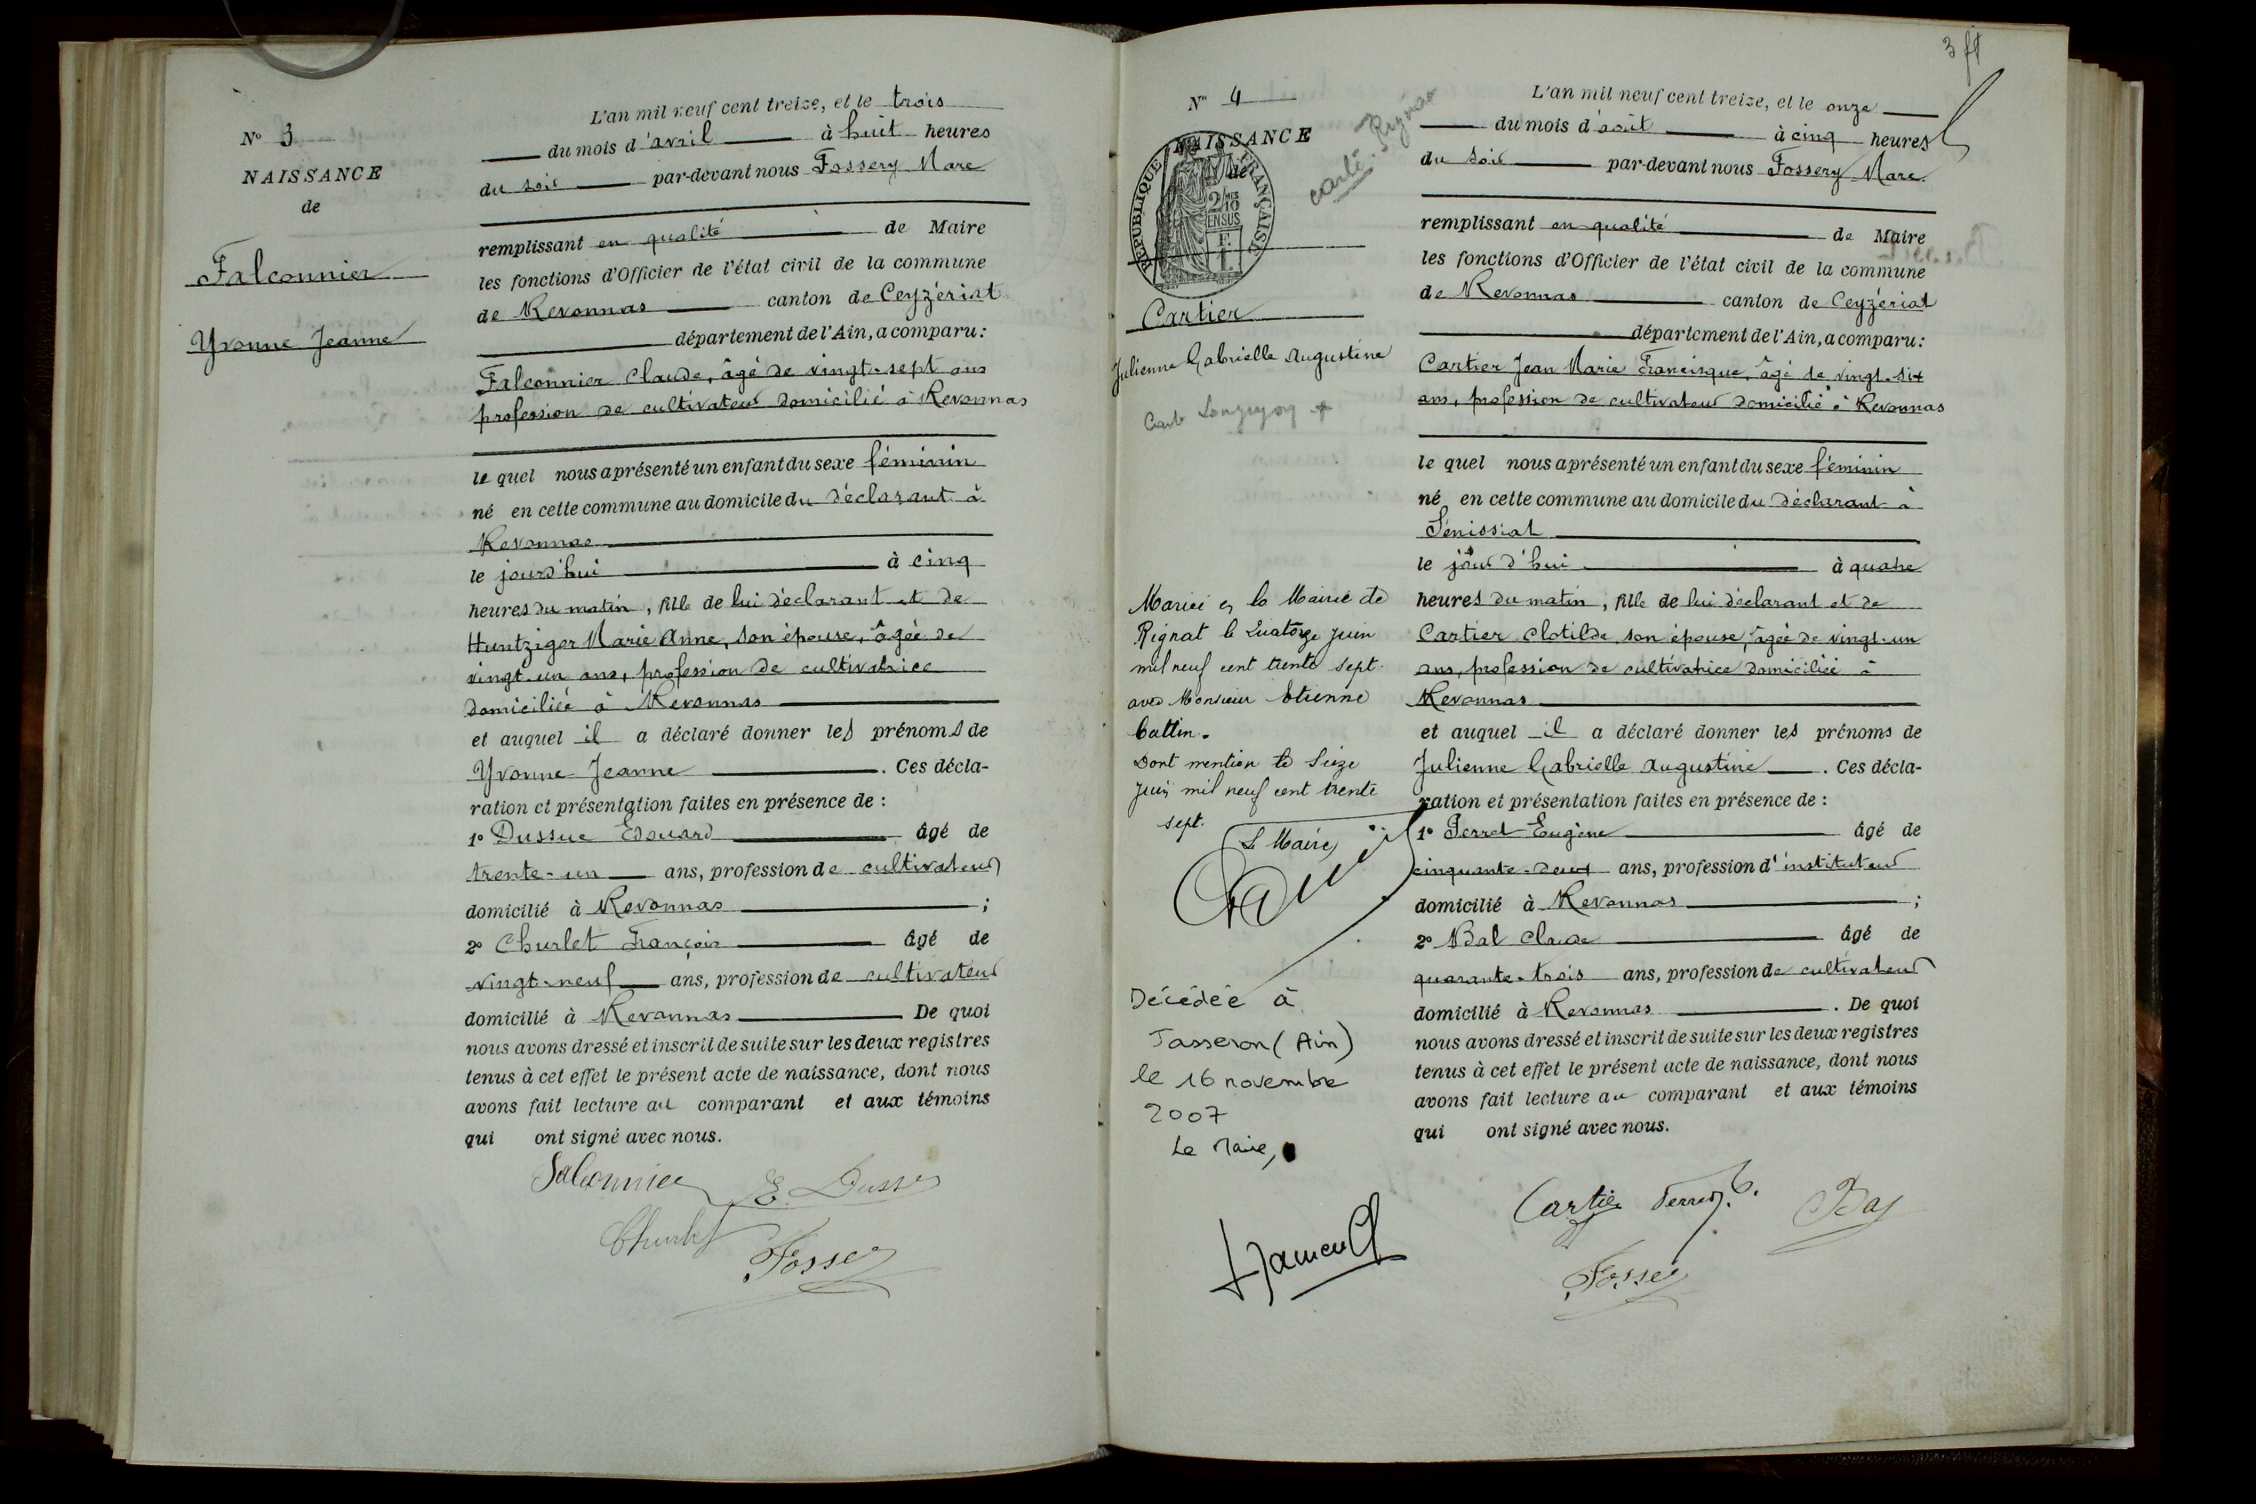 N° 3
NAISSANCE
de
Falconnier
Yvonne Jeanne
L'an mil neuf cent treize, et le trois
du mois d'avril à huit heures
du soir par-devant nous Fossery Marc
remplissant en qualité de Maire
les fonctions d'Officier de l'état civil de la commune
de Revonnas canton de Ceyzériat
département de l'Ain, a comparu:
Falconnier Claude, âgé de vingt-sept ans
profession de cultivateur domicilié à Revonnas
le quel nous a présenté un enfant du sexe féminin
né en cette commune au domicile du déclarant à
Revonnas
le jourd'hui à cinq
heures du matin, fille de lui déclarant et de
Huntziger Marie Anne, son épouse, âgée de
vingt-un ans, profession de cultivatrice
domiciliée à Revonnas
et auquel il a déclaré donner les prénoms de
Yvonne Jeanne. Ces décla-
ration et présentation faites en présence de :
1° Dussuc Edouard âgé de
trente-un ans, profession de cultivateur
domicilié à Revonnas ;
2° Churlet François âgé de
vingt-neuf ans, profession de cultivateur
domicilié à Revonnas De quoi
nous avons dressé et inscrit de suite sur les deux registres
tenus à cet effet le présent acte de naissance, dont nous
avons fait lecture au comparant et aux témoins
qui ont signé avec nous.
Falconnier E. Dussuc
Churlet
Fossery
3
N° 4
NAISSANCE
de
RÉPUBLIQUE FRANÇAISE
2/10
EN SUS
Cartier
Julienne Gabrielle Augustine
Mariée à la Mairie de
Rignat le Quatorze juin
mil neuf cent trente sept
avec Monsieur Etienne
Cattin.
Dont mention le Seize
Juin mil neuf cent trente
sept.
Le Maire,
Décédée à
Jasseron (Ain)
le 16 novembre
2007
Le Maire,
L'an mil neuf cent treize, et le onze
du mois d'août à cinq heures
du soir par-devant nous Fossery Marc
remplissant en qualité de Maire
les fonctions d'Officier de l'état civil de la commune
de Revonnas canton de Ceyzériat
département de l'Ain, a comparu:
Cartier Jean Marie Francisque, âgé de vingt-six
ans, profession de cultivateur domicilié à Revonnas
le quel nous a présenté un enfant du sexe féminin
né en cette commune au domicile du déclarant à
Sénissiat
le jour d'hui à quatre
heures du matin, fille de lui déclarant et de
Cartier Clotilde son épouse, âgée de vingt-un
ans, profession de cultivatrice domiciliée à
Revonnas
et auquel il a déclaré donner les prénoms de
Julienne Gabrielle Augustine. Ces décla-
ration et présentation faites en présence de :
1° Perret Eugène âgé de
cinquante-deux ans, profession d'instituteur
domicilié à Revonnas ;
2° Bal Claude âgé de
quarante-trois ans, profession de cultivateur
domicilié à Revonnas. De quoi
nous avons dressé et inscrit de suite sur les deux registres
tenus à cet effet le présent acte de naissance, dont nous
avons fait lecture au comparant et aux témoins
qui ont signé avec nous.
Cartier Perret E. Bal
Fossery